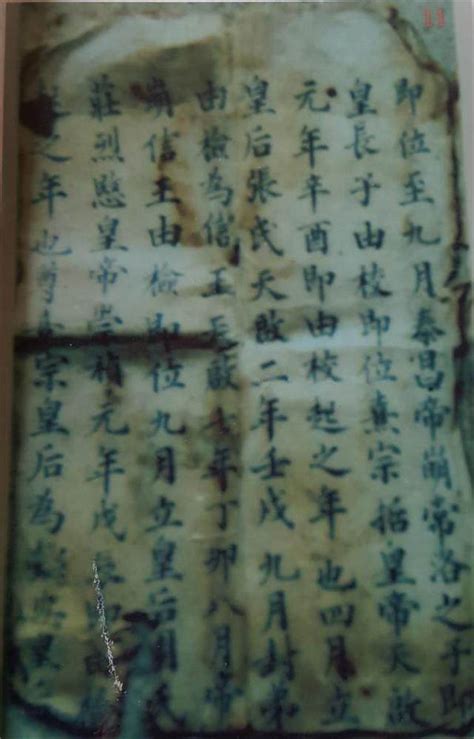 11
即位至九月泰昌帝崩常洛之子即
皇長子由校即位熹宗悊皇帝天啟
元年辛酉即由校起之年也四月立
皇后張氏天啟二年壬戌九月封弟
由檢為信王天啟七年丁卯八月帝
崩信王由檢即位九月立皇后周氏
莊烈愍皇帝崇禎元年戊辰即由檢
起之年也尊熹宗皇后為懿安皇后